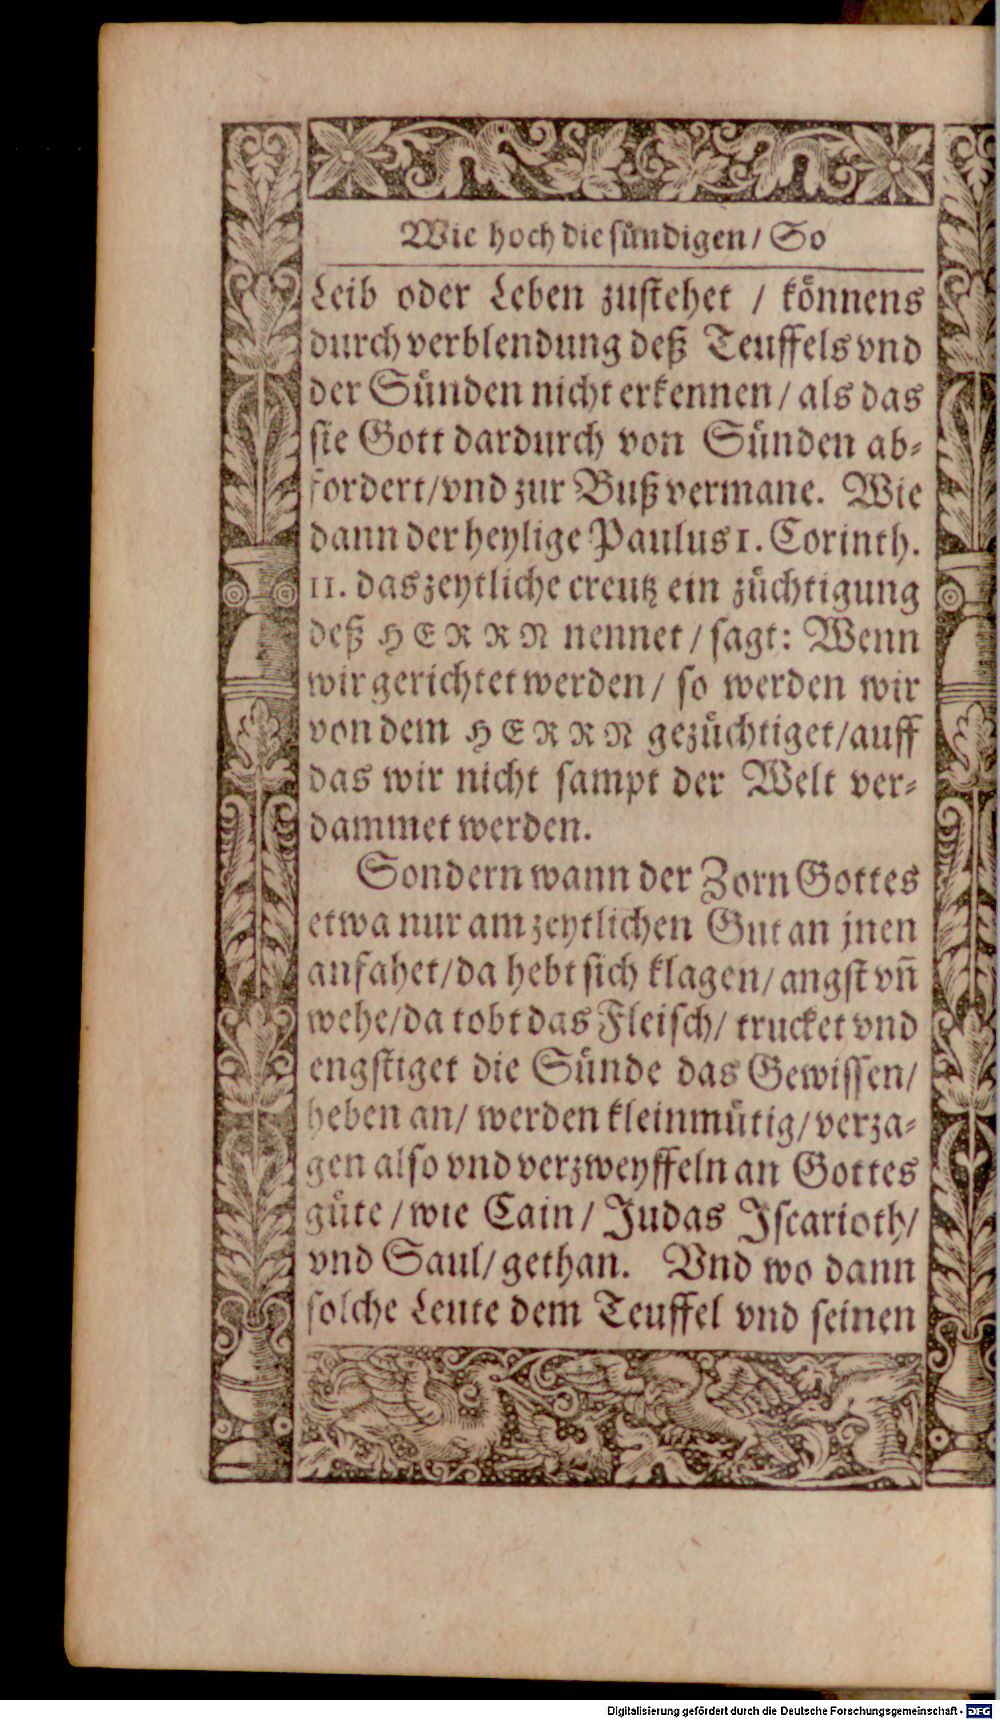 Wie hoch die sündigen/ So
Leib oder Leben zustehet / können​s
durch verblendung deß Teuffels vnd
der Sünden nicht erkennen/ als das
sie Gott dardurch von Sünden ab-
fordert/vnd zur Buß vermane. Wie
dann der heylige Paulus 1. Corinth.
11. das zeytliche creutz ein züchtigung
deß HERRN nennet / sagt: Wenn
wir gerichtet werden/ so werden wir
von dem HERRN gezüchtiget/auff
das wir nicht sampt der Welt ver-
dammet werden.
Sondern wann der Zorn Gottes
etwa nur am zeytlichen Gut an jnen
anfahet/da hebt sich klagen/angst vñ
wehe/da tobt das Fleisch/ trucket vnd
engstiget die Sünde das Gewissen/
heben an/ werden kleinmütig/verza-
gen also vnd verzweyffeln an Gottes
güte/wie Cain/ Judas Iscarioth/
vnd Saul/gethan. Vnd wo dann
solche Leute dem Teuffel vnd seinen
Digitalisierung gefördert durch die Deutsche Forschungsgemeinschaft - DFG